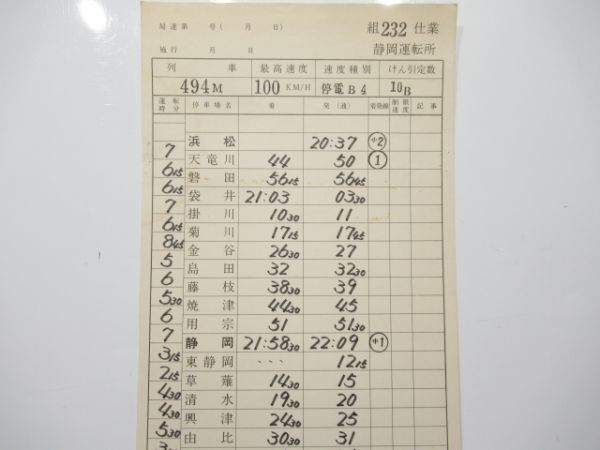 局達第 号( 月 日) 組232仕業
施行 月 日 静岡運転所
列車 最高速度 速度種別 けん引定数
494M 100KM/H 停電B4 10B
運転時分 停車場名 着 発(通) 着発線 制限速度 記事
浜松 20:37 中2
7 天竜川 44 50 1
6 15 磐田 56 15 56 45
6 15 袋井 21:03 03 30
7 掛川 10 30 11
6 15 菊川 17 15 17 45
8 45 金谷 26 30 27
5 島田 32 32 30
6 藤枝 38 30 39
5 30 焼津 44 30 45
6 用宗 51 51 30
7 静岡 21:58 30 22:09 中1
3 15 東静岡 ... 12 15
2 15 草薙 14 30 15
4 30 清水 19 30 20
4 30 興津 24 30 25
5 30 由比 30 30 31